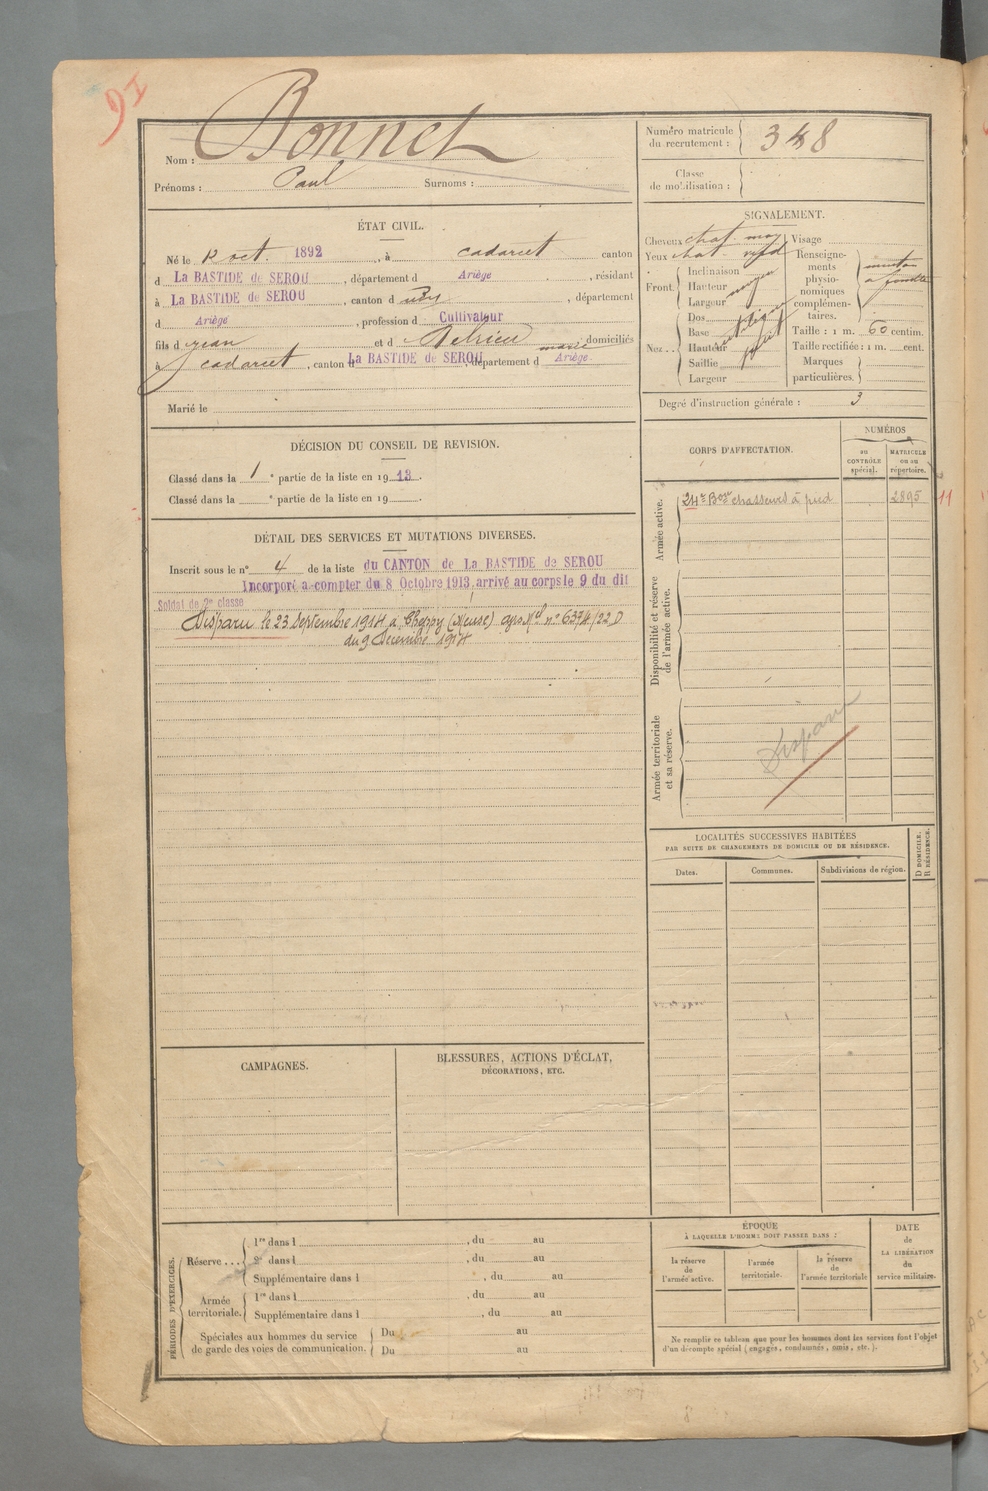 91
Bonnet
Nom :
Prénoms : Paul Surnoms :
Numéro matricule du recrutement : 348
Classe de mobilisation :
ÉTAT CIVIL.
Né le 12 oct. 1892, à cadarcet canton
d La BASTIDE de SEROU, département d Ariège, résidant
à La BASTIDE de SEROU, canton d, département
d Ariège, profession d Cultivateur
fils d jean et d domiciliés
à cadarcet, canton d La BASTIDE de SEROU, département d Ariège.
Marié le
SIGNALEMENT.
Cheveux chat. moy
Yeux chat.
Front. Inclinaison
Hauteur moyen
Largeur
Nez... Dos
Base
Hauteur
Saillie
Largeur
Visage
Renseignements physionomiques complémentaires. menton à fossette
Taille : 1 m. 60 centim.
Taille rectifiée : 1 m. cent.
Marques particulières.
Degré d'instruction générale : 3
DÉCISION DU CONSEIL DE REVISION.
Classé dans la 1e partie de la liste en 1913.
Classé dans la e partie de la liste en 19 .
DÉTAIL DES SERVICES ET MUTATIONS DIVERSES.
Inscrit sous le n° 4 de la liste du CANTON de La BASTIDE de SEROU
Incorporé a compter du 8 Octobre 1913, arrivé au corps le 9 du dit
Soldat de 2e classe
Disparu le 23 Septembre 1914 à Cheppy (Meuse) avis Mel n° 6374/22 D
du 9 Décembre 1914
CORPS D'AFFECTATION.
NUMÉROS
au CONTRÔLE spécial.
MATRICULE ou au répertoire.
Armée active.
24e Bon chasseurs à pied 2895 11
Disponibilité et réserve de l'armée active.
Armée territoriale et sa réserve.
Disparu
LOCALITÉS SUCCESSIVES HABITÉES
PAR SUITE DE CHANGEMENTS DE DOMICILE OU DE RÉSIDENCE.
D DOMICILE. R RÉSIDENCE.
Dates. Communes. Subdivisions de région.
CAMPAGNES.
BLESSURES, ACTIONS D'ÉCLAT,
DÉCORATIONS, ETC.
PÉRIODES D'EXERCICES.
Réserve... 1re dans l , du au
2e dans l , du au
Supplémentaire dans l , du au
Armée territoriale. 1re dans l , du au
Supplémentaire dans l , du au
Spéciales aux hommes du service de garde des voies de communication. Du au
Du au
ÉPOQUE
À LAQUELLE L'HOMME DOIT PASSER DANS :
la réserve de l'armée active.
l'armée territoriale.
la réserve de l'armée territoriale
DATE de LA LIBÉRATION du service militaire.
Ne remplir ce tableau que pour les hommes dont les services font l'objet
d'un décompte spécial (engagés, condamnés, omis, etc.).